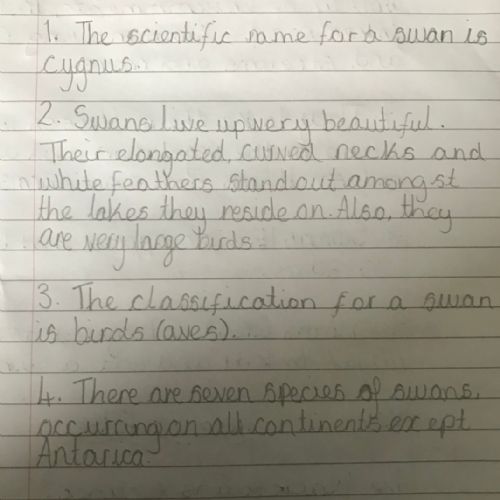 1. The scientific name for a swan is
cygnus.
2. Swans live up very beautiful.
Their elongated, curved necks and
white feathers stand out amongst
the lakes they reside on. Also, they
are very large birds.
3. The classification for a swan
is birds (aves).
4. There are seven species of swans,
occurring on all continents except
Antarica.